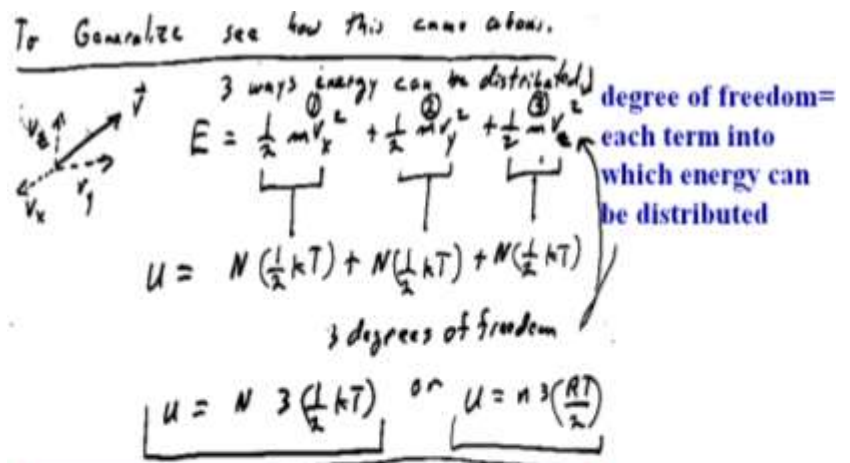 To Generalize see how this came about.
3 ways energy can be distributed
① ② ③
E = ½ mvₓ² + ½ mv_y² + ½ mv_z²
degree of freedom=
each term into
which energy can
be distributed
v⃗
v_z
v_y
vₓ
U = N(½kT) + N(½kT) + N(½kT)
3 degrees of freedom
U = N 3(½kT) or U = n 3(RT/2)